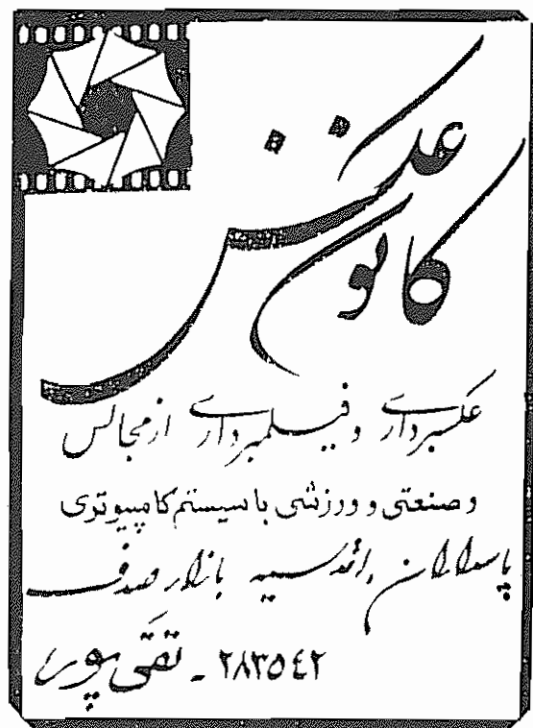 کانون عکس
عکسبرداری و فیلمبرداری از مجالس
و صنعتی و ورزشی با سیستم کامپیوتری
پاسداران، اقدسیه بازار صدف
۲۸۳۵۴۲ - تقی پور